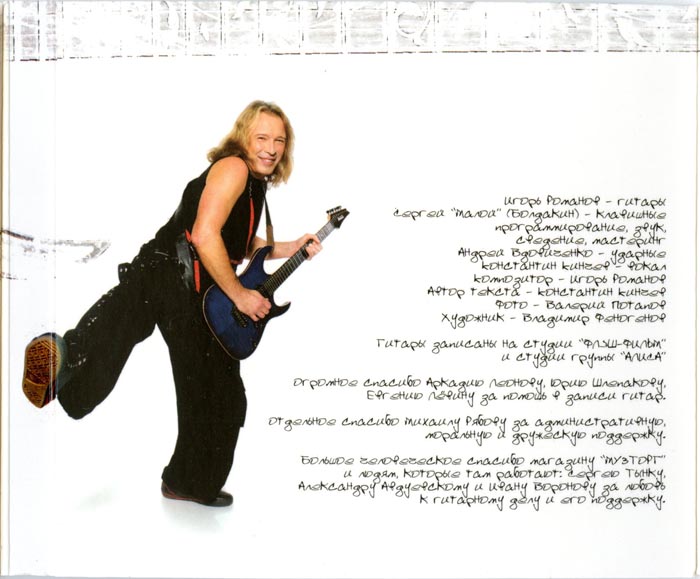 Игорь Романов - гитары
Сергей "Малой" (Болдакин) - клавишные
программирование, звук,
сведение, мастеринг
Андрей Вдовиченко - ударные
Константин Кинчев - вокал
Композитор - Игорь Романов
Автор текста - Константин Кинчев
Фото - Валерий Потапов
Художник - Владимир Феногенов
Гитары записаны на студии "Флэш-Фильм"
и студии группы "Алиса"
Огромное спасибо Аркадию Леонову, Юрию Шлепакову,
Евгению Лёвину за помощь в записи гитар.
Отдельное спасибо Михаилу Рябову за административную,
моральную и дружескую поддержку.
Большое человеческое спасибо магазину "МУЗТОРГ"
и людям, которые там работают: Сергею Тынку,
Александру Авдуевскому и Ивану Воронову за любовь
к гитарному делу и его поддержку.